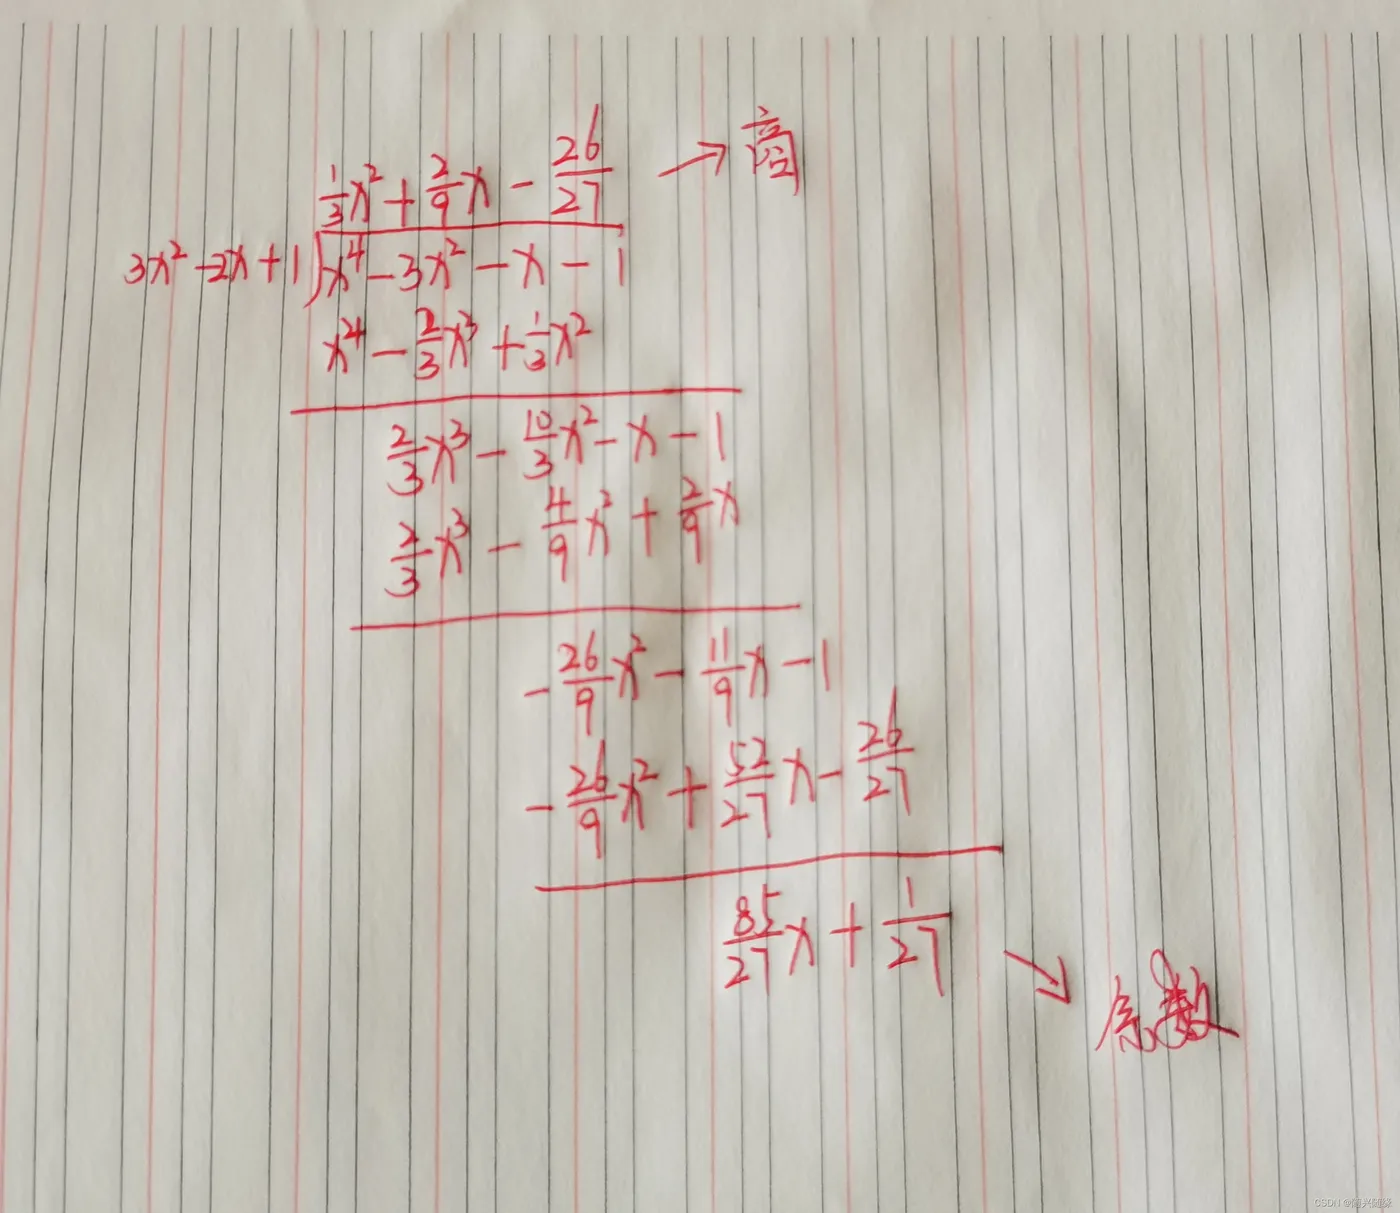 1/3 x² + 2/9 x - 26/27 → 商
3x² - 2x + 1 ) x⁴ - 3x² - x - 1
x⁴ - 2/3 x³ + 1/3 x²
2/3 x³ - 10/3 x² - x - 1
2/3 x³ - 4/9 x² + 2/9 x
- 26/9 x² - 11/9 x - 1
- 26/9 x² + 52/27 x - 26/27
85/27 x + 1/27 → 余数
CSDN @随兴随缘